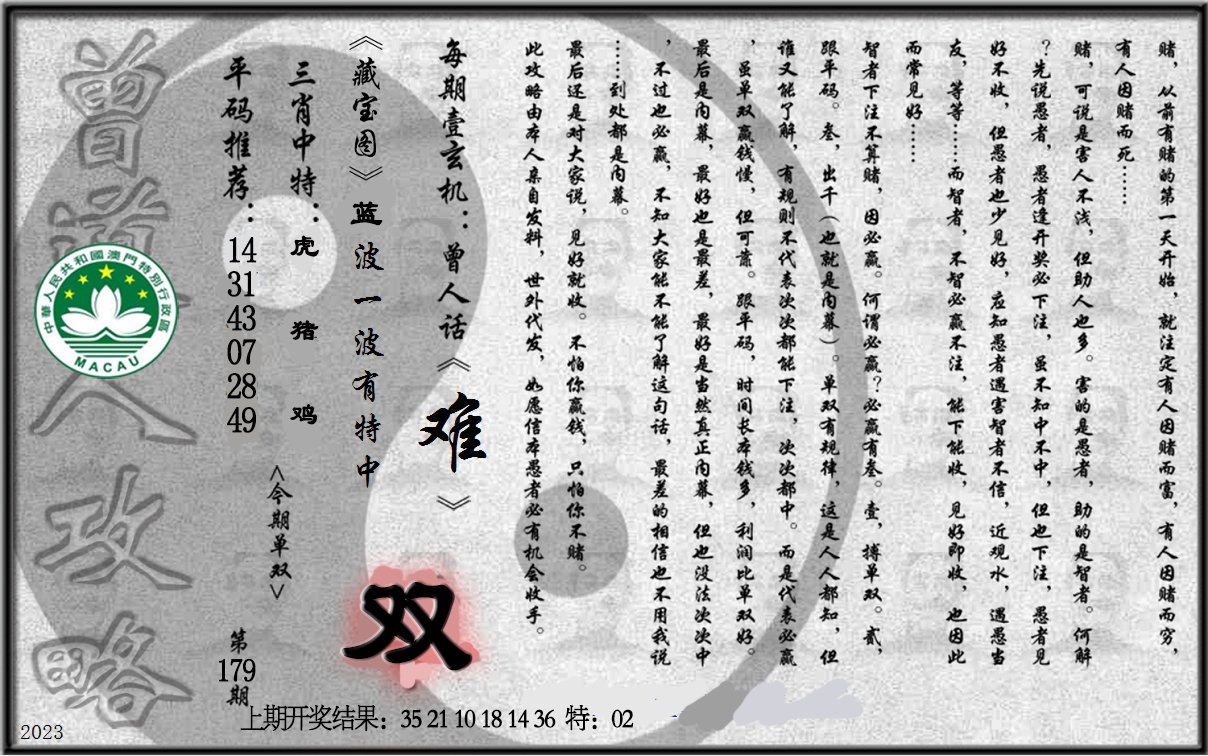 赌，从前有赌的第一天开始，就注定有人因赌而富，有人因赌而穷，
有人因赌而死……
赌，可说是害人不浅，但助人也多。害的是愚者，助的是智者。何解
？先说愚者，愚者逢开奖必下注，虽不知中不中，但也下注，愚者见
好不收，但愚者也少见好，应知愚者遇害智者不信，近观水，遇愚当
友，等等……而智者，不智必赢不注，能下能收，见好即收，也因此
而常见好……
智者下注不算赌，因必赢。何谓必赢？必赢有叁。壹，搏单双。贰，
跟平码。叁，出千（也就是内幕）。单双有规律，这是人人都知，但
谁又能了解，有规则不代表次次都能下注，次次都中。而是代表必赢
，虽单双赢钱慢，但可靠。跟平码，时间长本钱多，利润比单双好。
最后是内幕，最好也是最差，最好是当然真正内幕，但也没法次次中
，不过也必赢，不知大家能不能了解这句话，最差的相信也不用我说
……到处都是内幕。
最后还是对大家说，见好就收。不怕你赢钱，只怕你不赌。
此攻略由本人亲自发料，世外代发，如愿信本愚者必有机会收手。
每期壹玄机：曾人话《难》
《藏宝图》蓝波一波有特中
双
三肖中特：虎 猪 鸡
<今期单双>
平码推荐：14 31 43 07 28 49
第179期
曾道人攻略
中華人民共和國澳門特別行政區
MACAU
上期开奖结果：35 21 10 18 14 36 特：02
2023